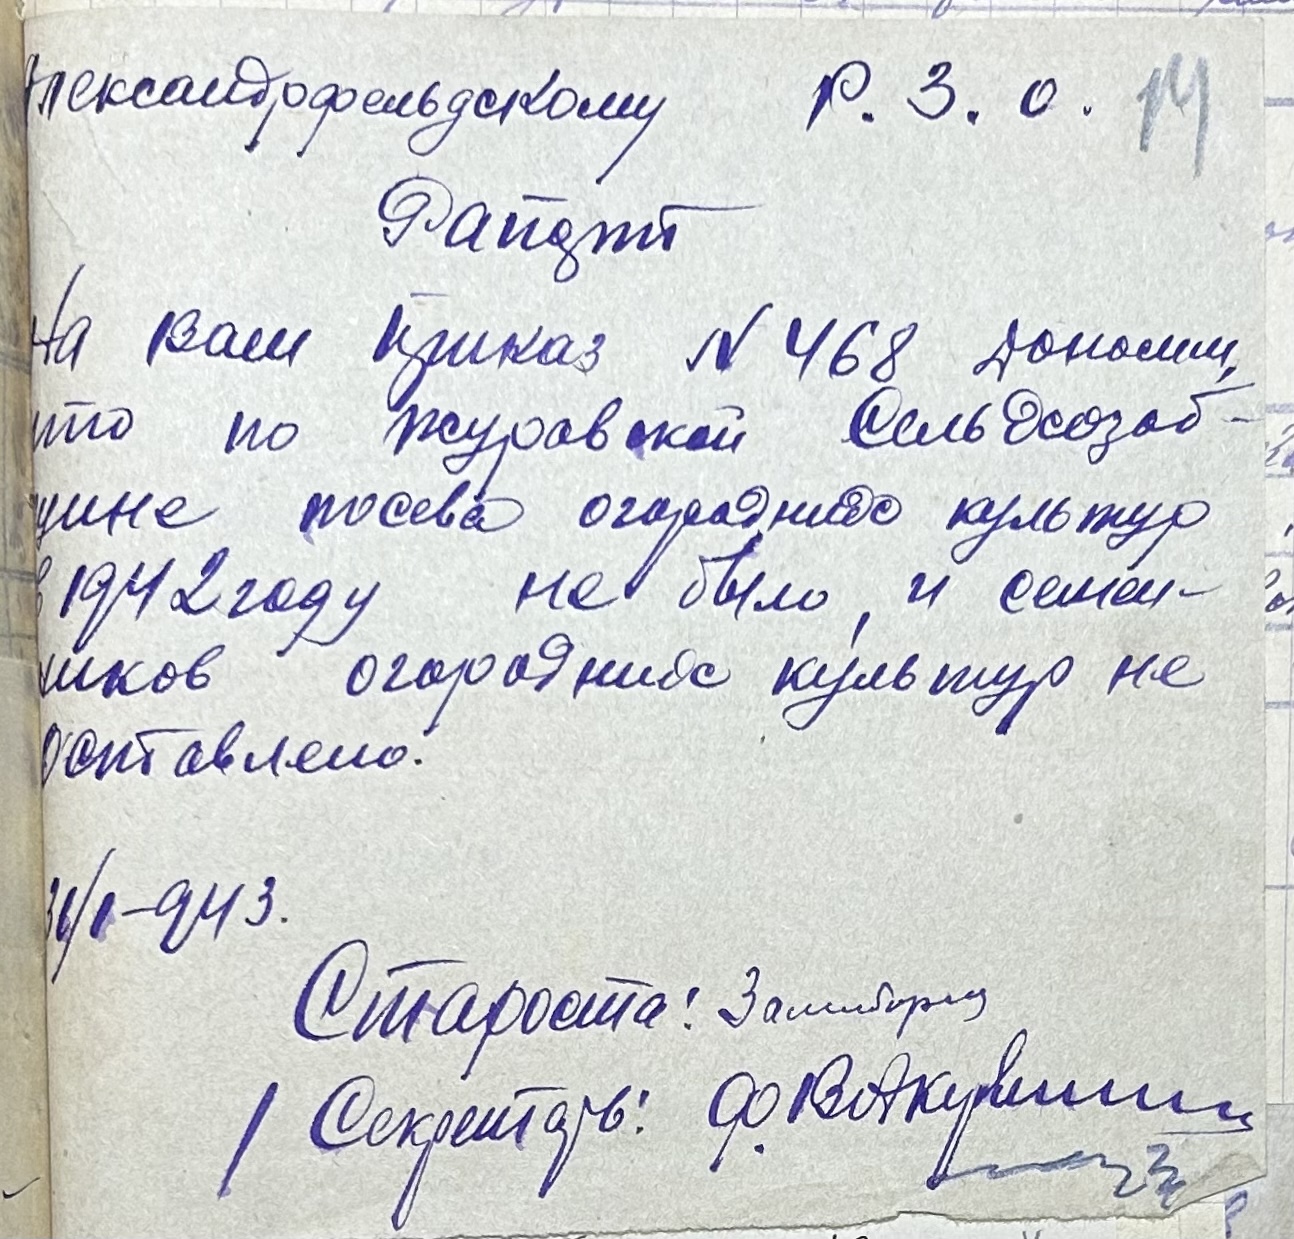 Александрфельдскому Р. З. о. 14
Рапорт
На Ваш Приказ N 468 доносим,
что по Журавской Сельхозоб-
щине посева огородних культур
в 1942 году не было, и семен-
ников огородних культур не
оставлено.
31/1-943.
Староста:
Секретарь: